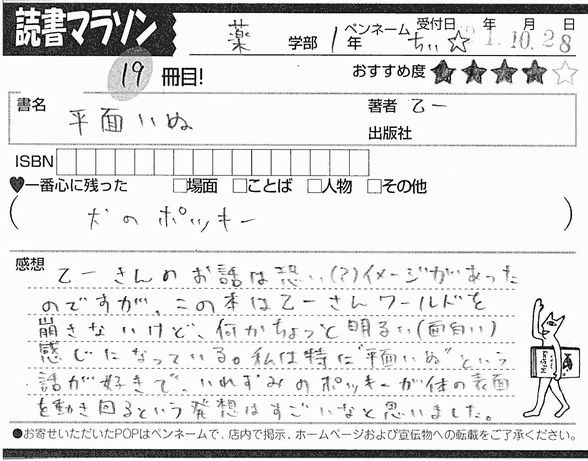 読書マラソン
薬 学部 1年 ペンネーム ちぃ☆ 受付日 年 月 日
1.10.28
19 冊目! おすすめ度 ★★★★☆
書名 平面いぬ 著者 乙一
出版社
ISBN
♥一番心に残った □場面 □ことば □人物 □その他
(犬のポッキー)
感想 乙一さんのお話は恐い(?)イメージがあった
のですが、この本は乙一さんワールドを
崩さないけど、何かちょっと明るい(面白い)
感じになっている。私は特に"平面いぬ"という
話が好きで、いれずみのポッキーが体の表面
を動き回るという発想はすごいなと思いました。
●お寄せいただいたPOPはペンネームで、店内で掲示、ホームページおよび宣伝物への転載をご了承ください。